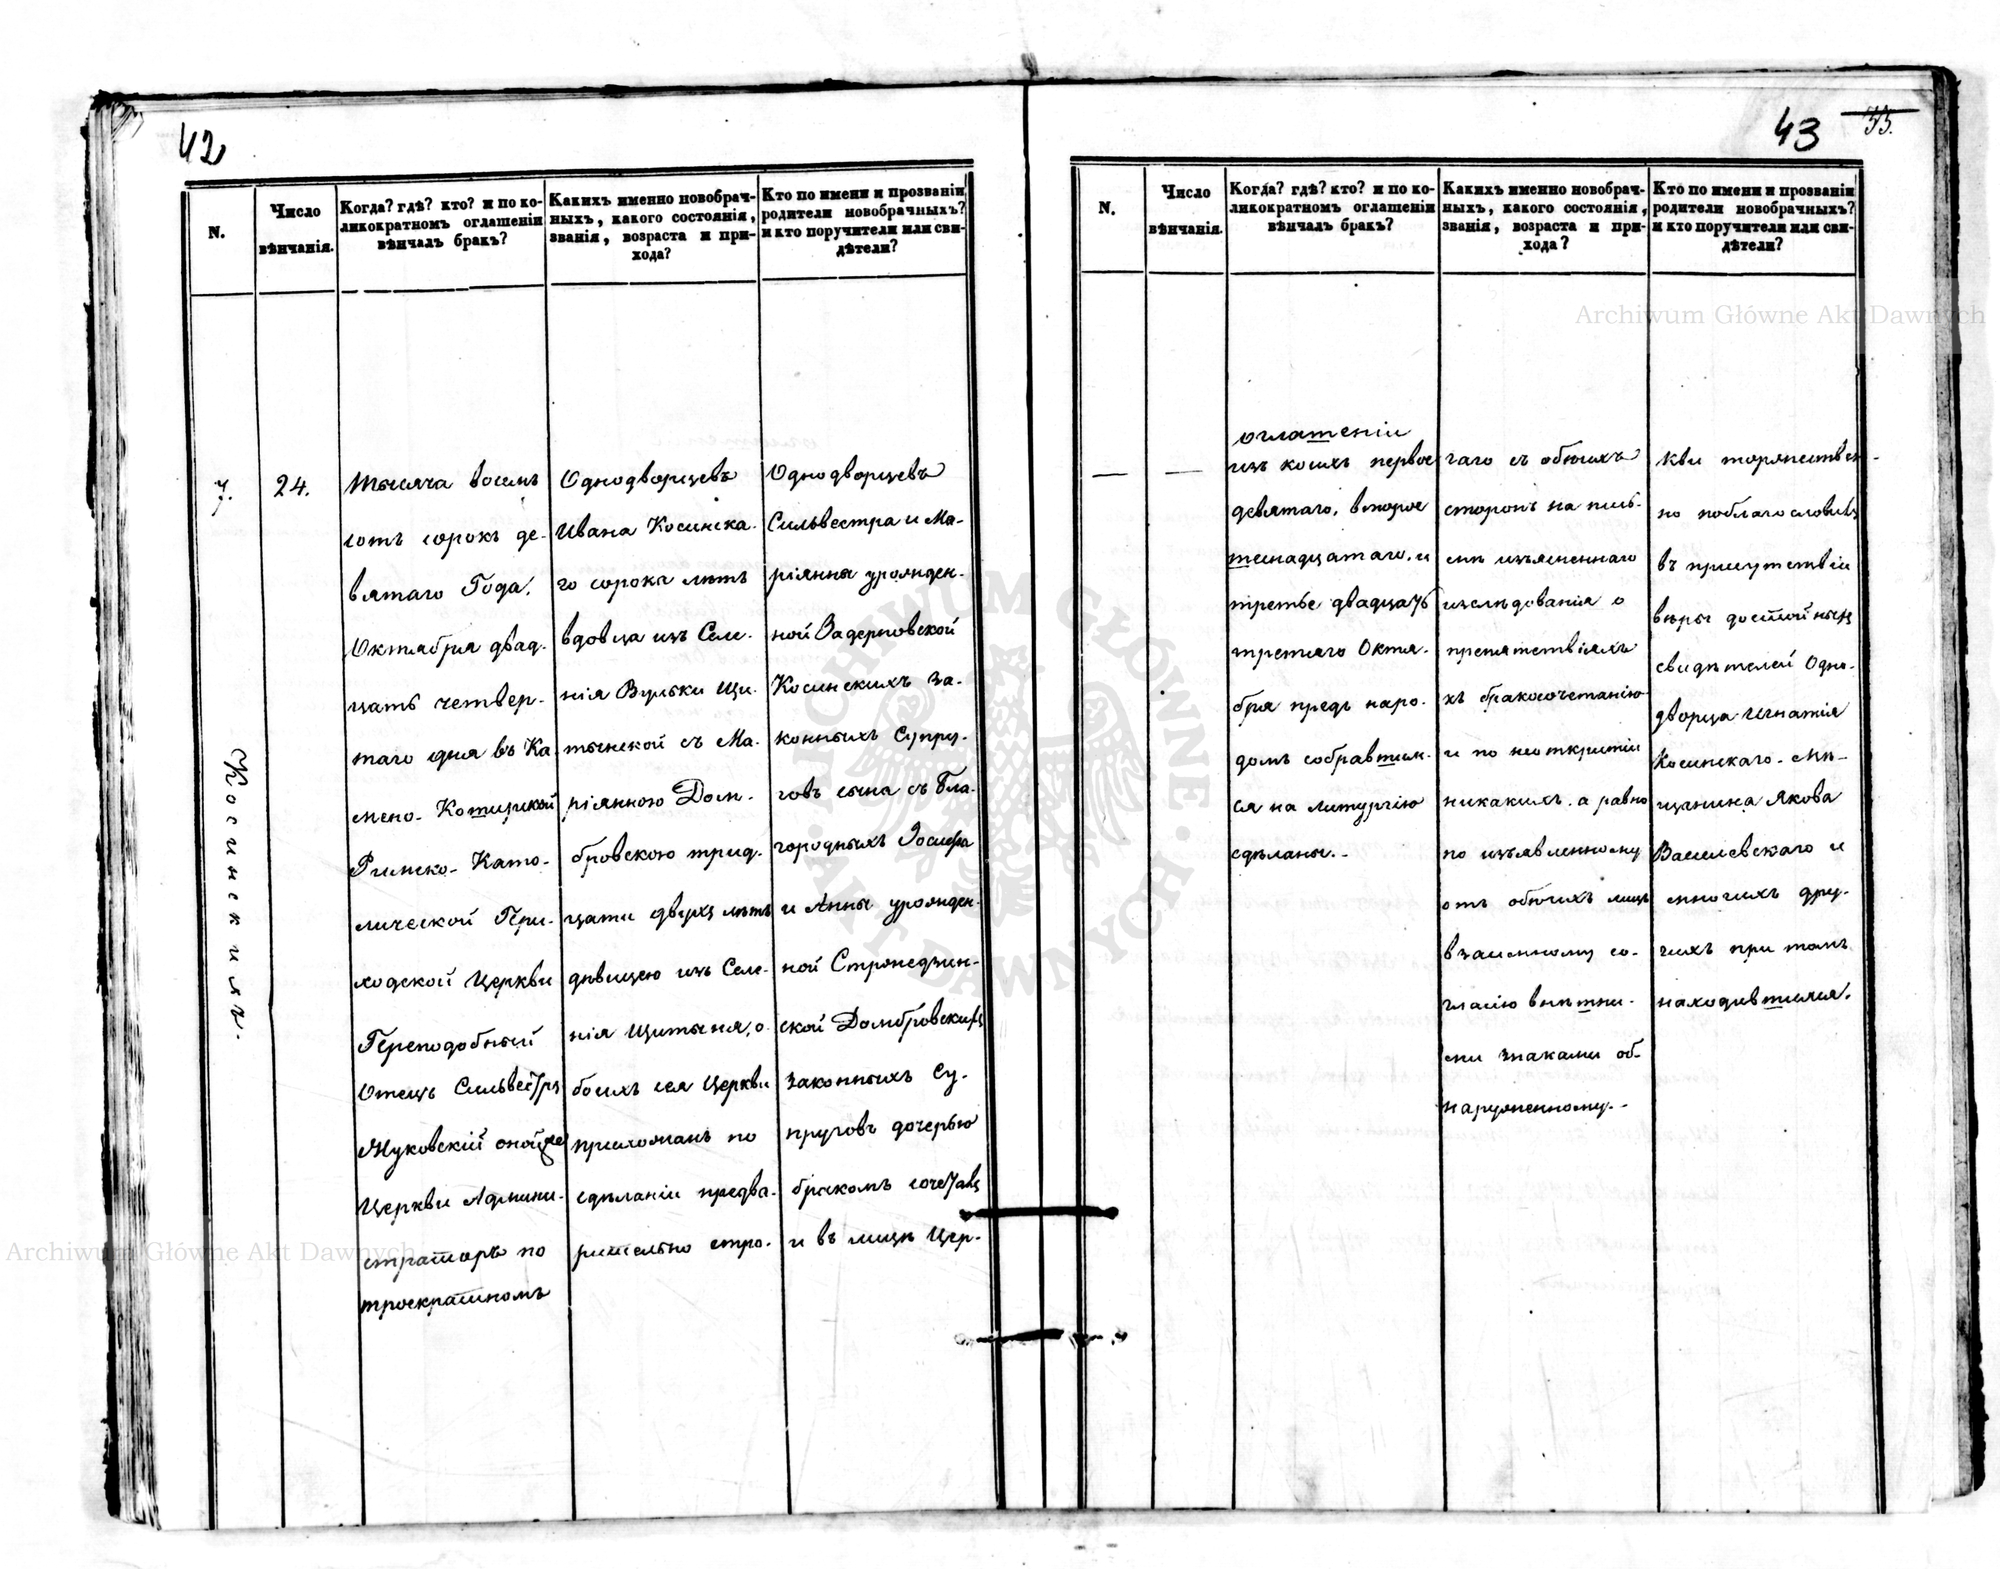 42
N.
Число
вѣнчанія.
Когда? гдѣ? кто? и по ко-
ликократномъ оглашеніи
вѣнчалъ бракъ?
Какихъ именно новобрач-
ныхъ, какого состоянія,
званія, возраста и при-
хода?
Кто по имени и прозванію
родители новобрачныхъ?
и кто поручители или сви-
дѣтели?
7.
Косинскихъ.
24.
Тысяча восемь
сотъ сорокъ де-
вятаго Года,
Октября двад-
цать четвер-
таго дня въ Ка
мено-Коширской
Римско-Като-
лической При-
ходской Церкви
Преподобный
Отецъ Сильвестръ
Жуковскій оной же
Церкви Админи-
страторъ по
троекратномъ
Однодворцевъ
Ивана Косинска-
го сорока лѣтъ
вдовца изъ Селе-
нія Вульки Щи-
тынской съ Ма-
ріянною Дом-
бровскою трид-
цати двухъ лѣтъ
дѣвицею изъ Селе-
нія Щитыня, о-
боихъ сея Церкви
прихожанъ по
сдѣланіи предва-
рительно стро-
Однодворцевъ
Сильвестра и Ма-
ріянны урожден-
ной Задерновской
Косинскихъ за-
конныхъ Супру-
говъ сына съ Бла-
городныхъ Іосифа
и Анны урожден-
ной Стропедзин-
ской Домбровскихъ
законныхъ Су-
пруговъ дочерью
бракомъ сочеталъ
и въ лицѣ Цер-
43
35.
N.
Число
вѣнчанія.
Когда? гдѣ? кто? и по ко-
ликократномъ оглашеніи
вѣнчалъ бракъ?
Какихъ именно новобрач-
ныхъ, какого состоянія,
званія, возраста и при-
хода?
Кто по имени и прозванію
родители новобрачныхъ?
и кто поручители или сви-
дѣтели?
оглашеніи
изъ коихъ первое
девятаго, второе
шестнадцатаго, и
третье двадцать
третьяго Октя-
бря предъ наро-
домъ собравшим-
ся на литургію
сдѣланы.-
гаго съ обоихъ
сторонъ на пись-
мѣ изъясненнаго
изслѣдованія о
препятствіяхъ
къ бракосочетанію
и по неоткрытіи
никакихъ, а равно
по изъявленному
отъ обоихъ лицъ
взаимному со-
гласію внѣшни-
ми знаками об-
наруженному.-
кви торжествен-
но поблагословилъ
въ присутствіи
вѣры достойныхъ
свидѣтелей Одно-
дворца Игнатія
Косинскаго, Мѣ-
щанина Якова
Василевскаго и
многихъ дру-
гихъ при томъ
находившихся.
Archiwum Główne Akt Dawnych
Archiwum Główne Akt Dawnych
ARCHIWUM GŁÓWNE
AKT DAWNYCH